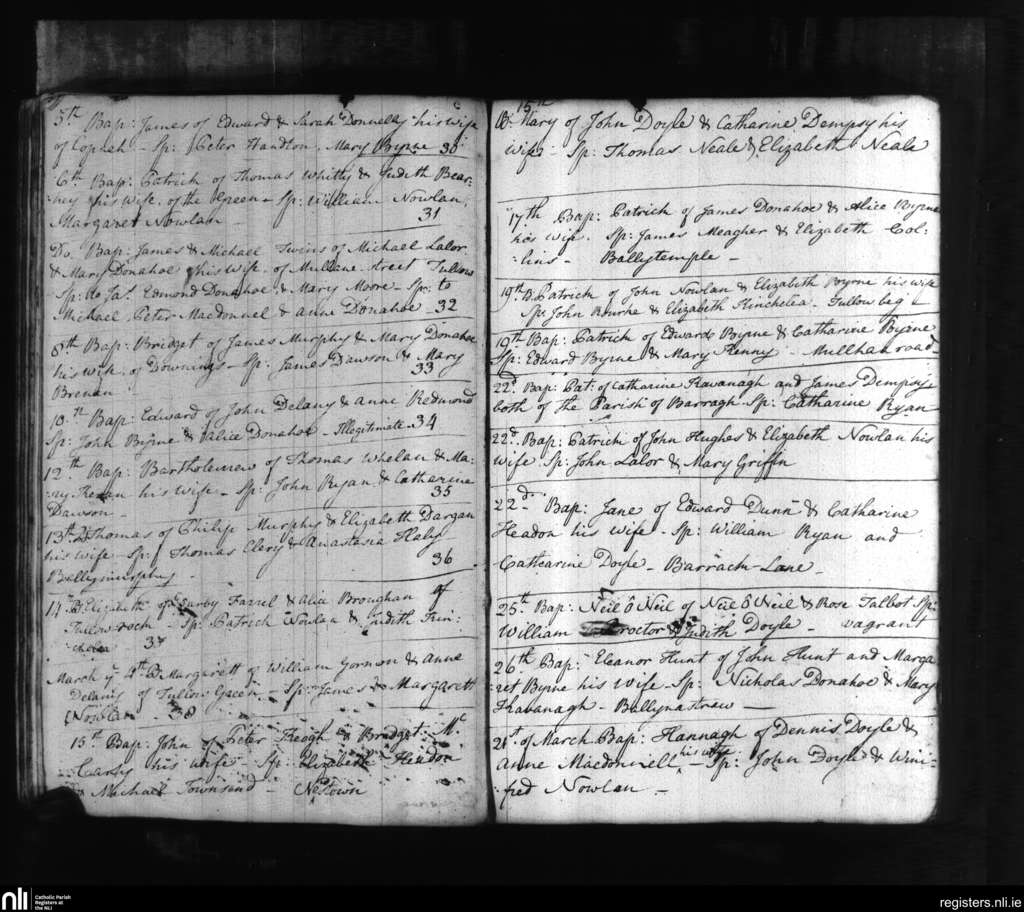 5th Bap: James of Edward & Sarah Donnelly his wife
of Coprah - Sp: Peter Hanlton, Mary Byrne 30
6th Bap: Patrick of Thomas Whitty & Judith Bear-
ney his wife of the Green - Sp: William Nowlan,
Margaret Nowlan 31
Do. Bap: James & Michael Twins of Michael Lalor
& Mary Donahoe his wife of street Tullow
Sp: to Jas. Edmond Donahoe & Mary Moore - Sp: to
Michael, Peter Macdonnel & Anne Donahoe 32
8th Bap: Bridget of James Murphy & Mary Donahoe
his wife of Downings - Sp: James Dawson & Mary
Brenan 33
10th Bap: Edward of John Delany & Anne Redmond
Sp: John Byrne & Alice Donahoe - Illegitimate - 34
12th Bap: Bartholemew of Thomas Whelan & Ma-
ry his wife - Sp: John Ryan & Catharine
Dawson - 35
13th Thomas of Philip Murphy & Elizabeth Dargan
his wife - Sp: Thomas Clery & Anastasia
Ballymurphy - 36
14th B Elizabeth of Darby Farrel & Alia Broughan of
Tullow rock - Sp: Patrick Nowlan & Judith Kin-
chela 37
March ye 4th B: Margarett of William Gormon & Anne
Delany of Tullow Green - Sp: James & Margarett
Nowlan - 38
15th Bap: John of Peter Keogh & Bridget Mc
Carty his wife - Sp: Elizabeth Headon
Machael Townsend - Newtown
15th
B: Mary of John Doyle & Catharine Dempsy his
wife - Sp: Thomas Neale & Elizabeth Neale
17th Bap: Patrick of James Donahoe & Alice Byrne
his wife. Sp: James Meagher & Elizabeth Col:
:lins - Ballytemple -
19th B Patrick of John Nowlan & Elizabeth Byrne his wife
Sp: John Bhurke & Elizabeth Kinchelia. Tullow beg -
19th Bap: Patrick of Edward Byrne & Catharine Byrne
Sp: Edward Byrne & Mary Kenny - road
22d. Bap: Pat: of Catharine Kavanagh and James Dempsy
both of the Parish of Barragh Sp: Catharine Ryan
22d. Bap: Patrick of John Hughes & Elizabeth Nowlan his
wife Sp: John Lalor & Mary Griffin
22d. Bap: Jane of Edward Dunn & Catharine
Headon his wife - Sp: William Ryan and
Catharine Doyle - Barrack-Lane -
25th Bap: Neil ô Neil of Neil ô Neil & Rose Talbot Sp:
William Proctor & Judith Doyle - vagrant
26th Bap: Eleanor Hunt of John Hunt and Marga
:ret Byrne his Wife - Sp: Nicholas Donahoe & Mary
Kavanagh - Ballynastrew -
21st of March Bap: Hannagh of Dennis Doyle &
Anne Macdonnell his wife - Sp: John Doyle & Wini-
fred Nowlan -
nli
Catholic Parish
Registers at
the NLI
registers.nli.ie